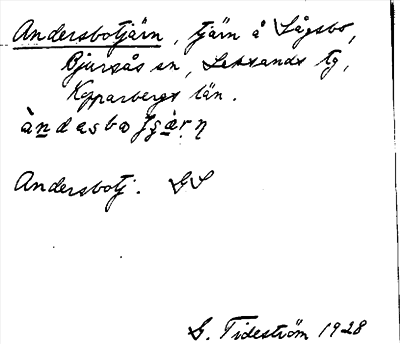 Andersbotjärn, tjärn å Lågsbo,
Bjursås sn, Leksands tg,
Kopparbergs län.
Andersbotj. GS
G. Tideström 1928